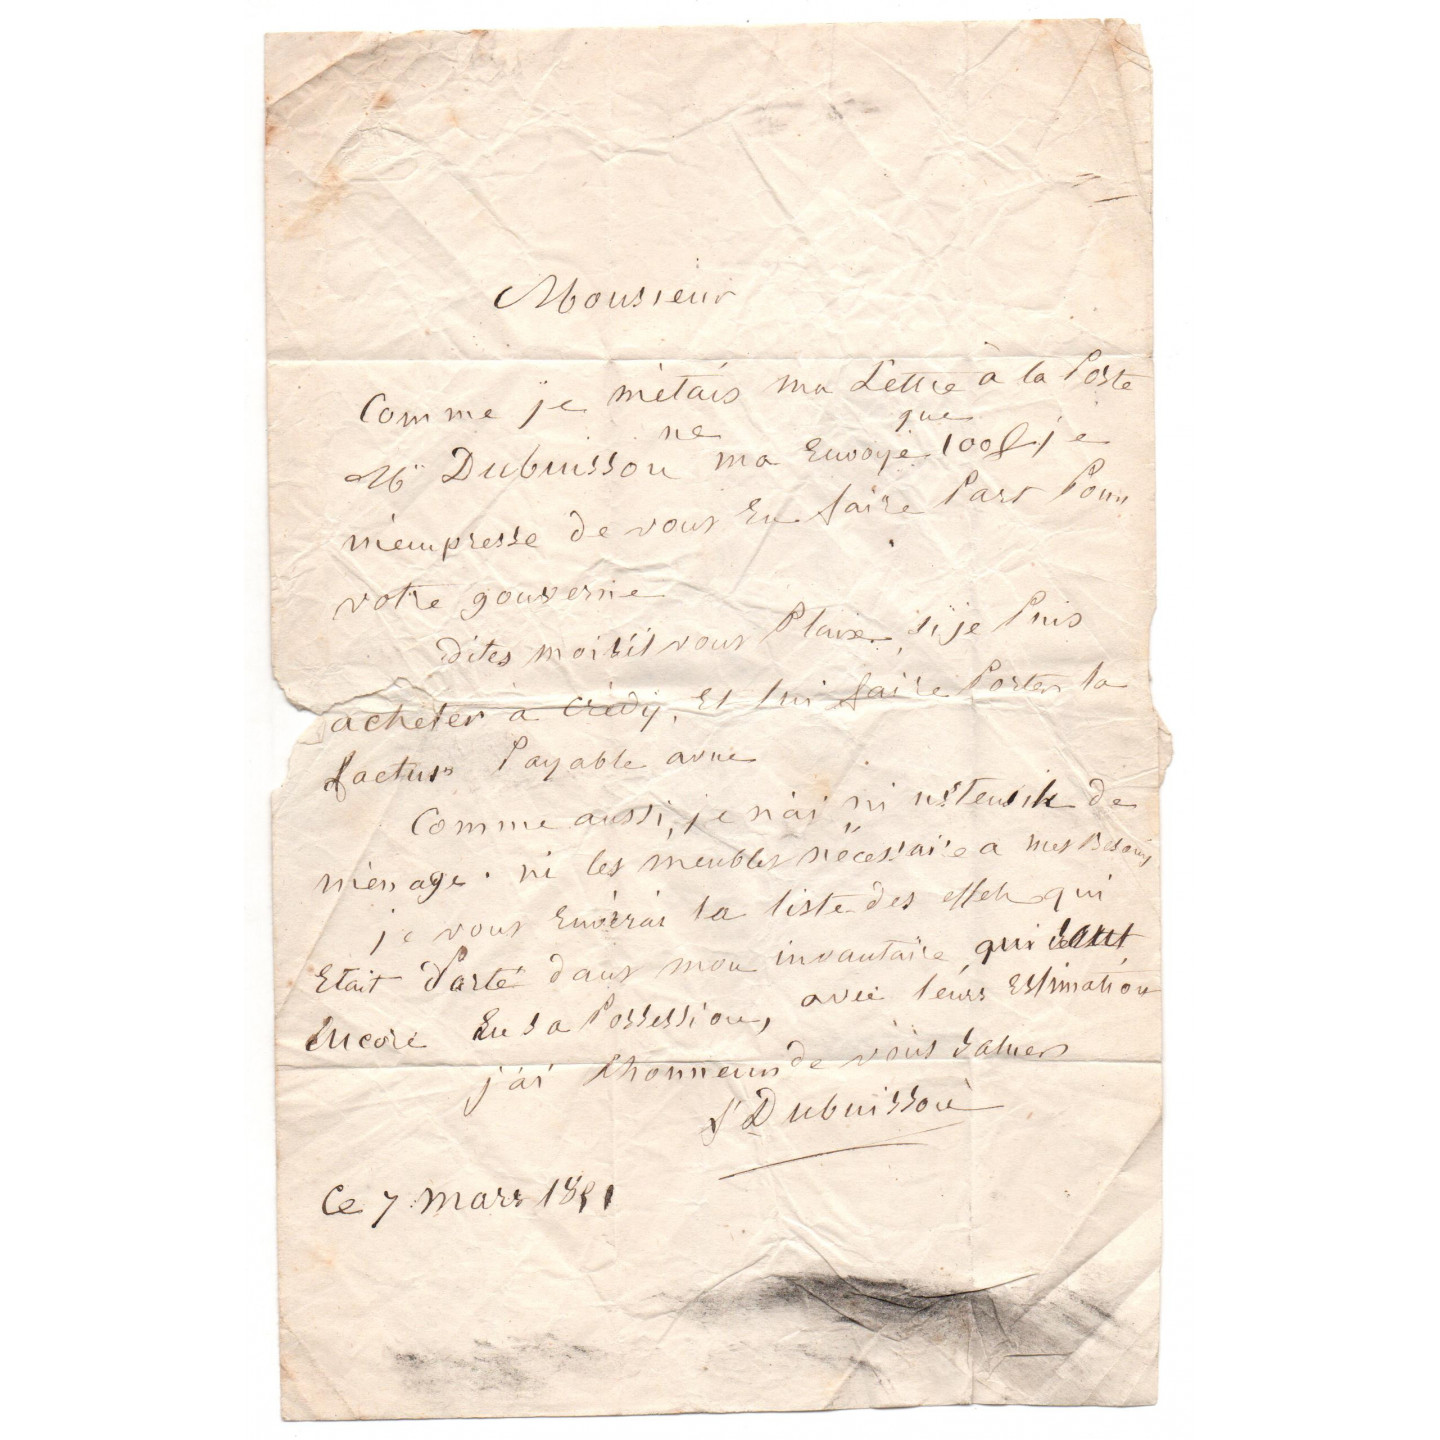 Monsieur
Comme je mètais ma Lettre à la Poste
que
ne
Mr Dubuisson ma Envoye 100f je
m'empresse de vous En faire Part Pour
votre gouvernie
dites moi s'il vous Plaix, si je Puis
acheter à credy, Et lui faire Porter la
factur Payable avue
Comme aussi, je n'ai ni ustensile de
ménage. ni les meubles nécessaire a mes Besoins
je vous Enverai la liste des effets qui
Etait Porté dans mon invantaire qui sont
Encore En sa Possession, avec leurs Estimation
j'ai l'honneur de voüs saluer
f Dubuisson
Ce 7 mars 1851